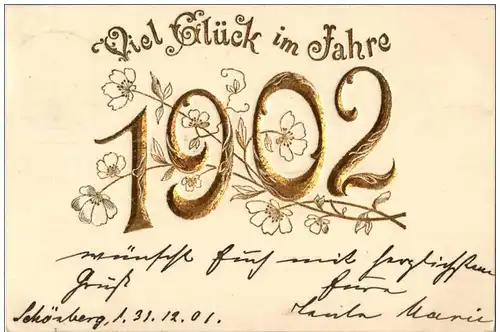 Viel Glück im Jahre
1902
wünscht Euch mit herzlichstem
Gruß Eure
Schönberg, 1.31.12.01. Marie